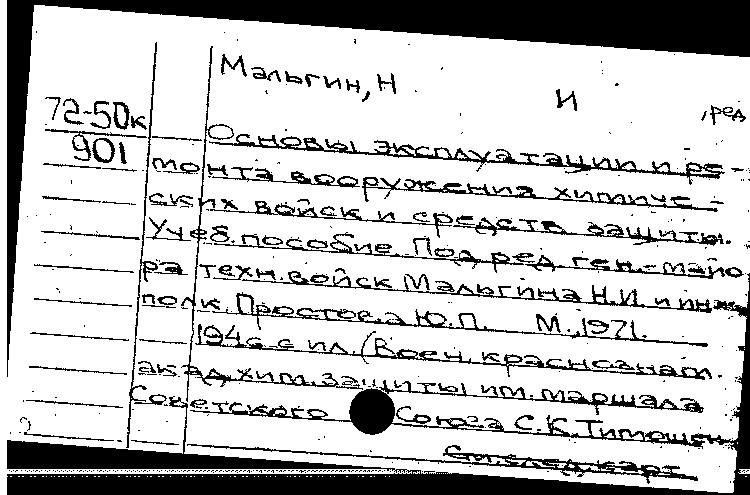 Мальгин, Н И , ред
72-50к
901
Основы эксплуатации и ре-
монта вооружения химиче-
ских войск и средств защиты.
Учеб. пособие. Под ред. ген.-майо
ра техн. войск Мальгина Н.И. и инж
полк. Простова Ю.П. М., 1971.
194 с. с ил. (Воен. краснознам.
акад. хим. защиты им. маршала
Советского Союза С.К. Тимошен
См. след. карт